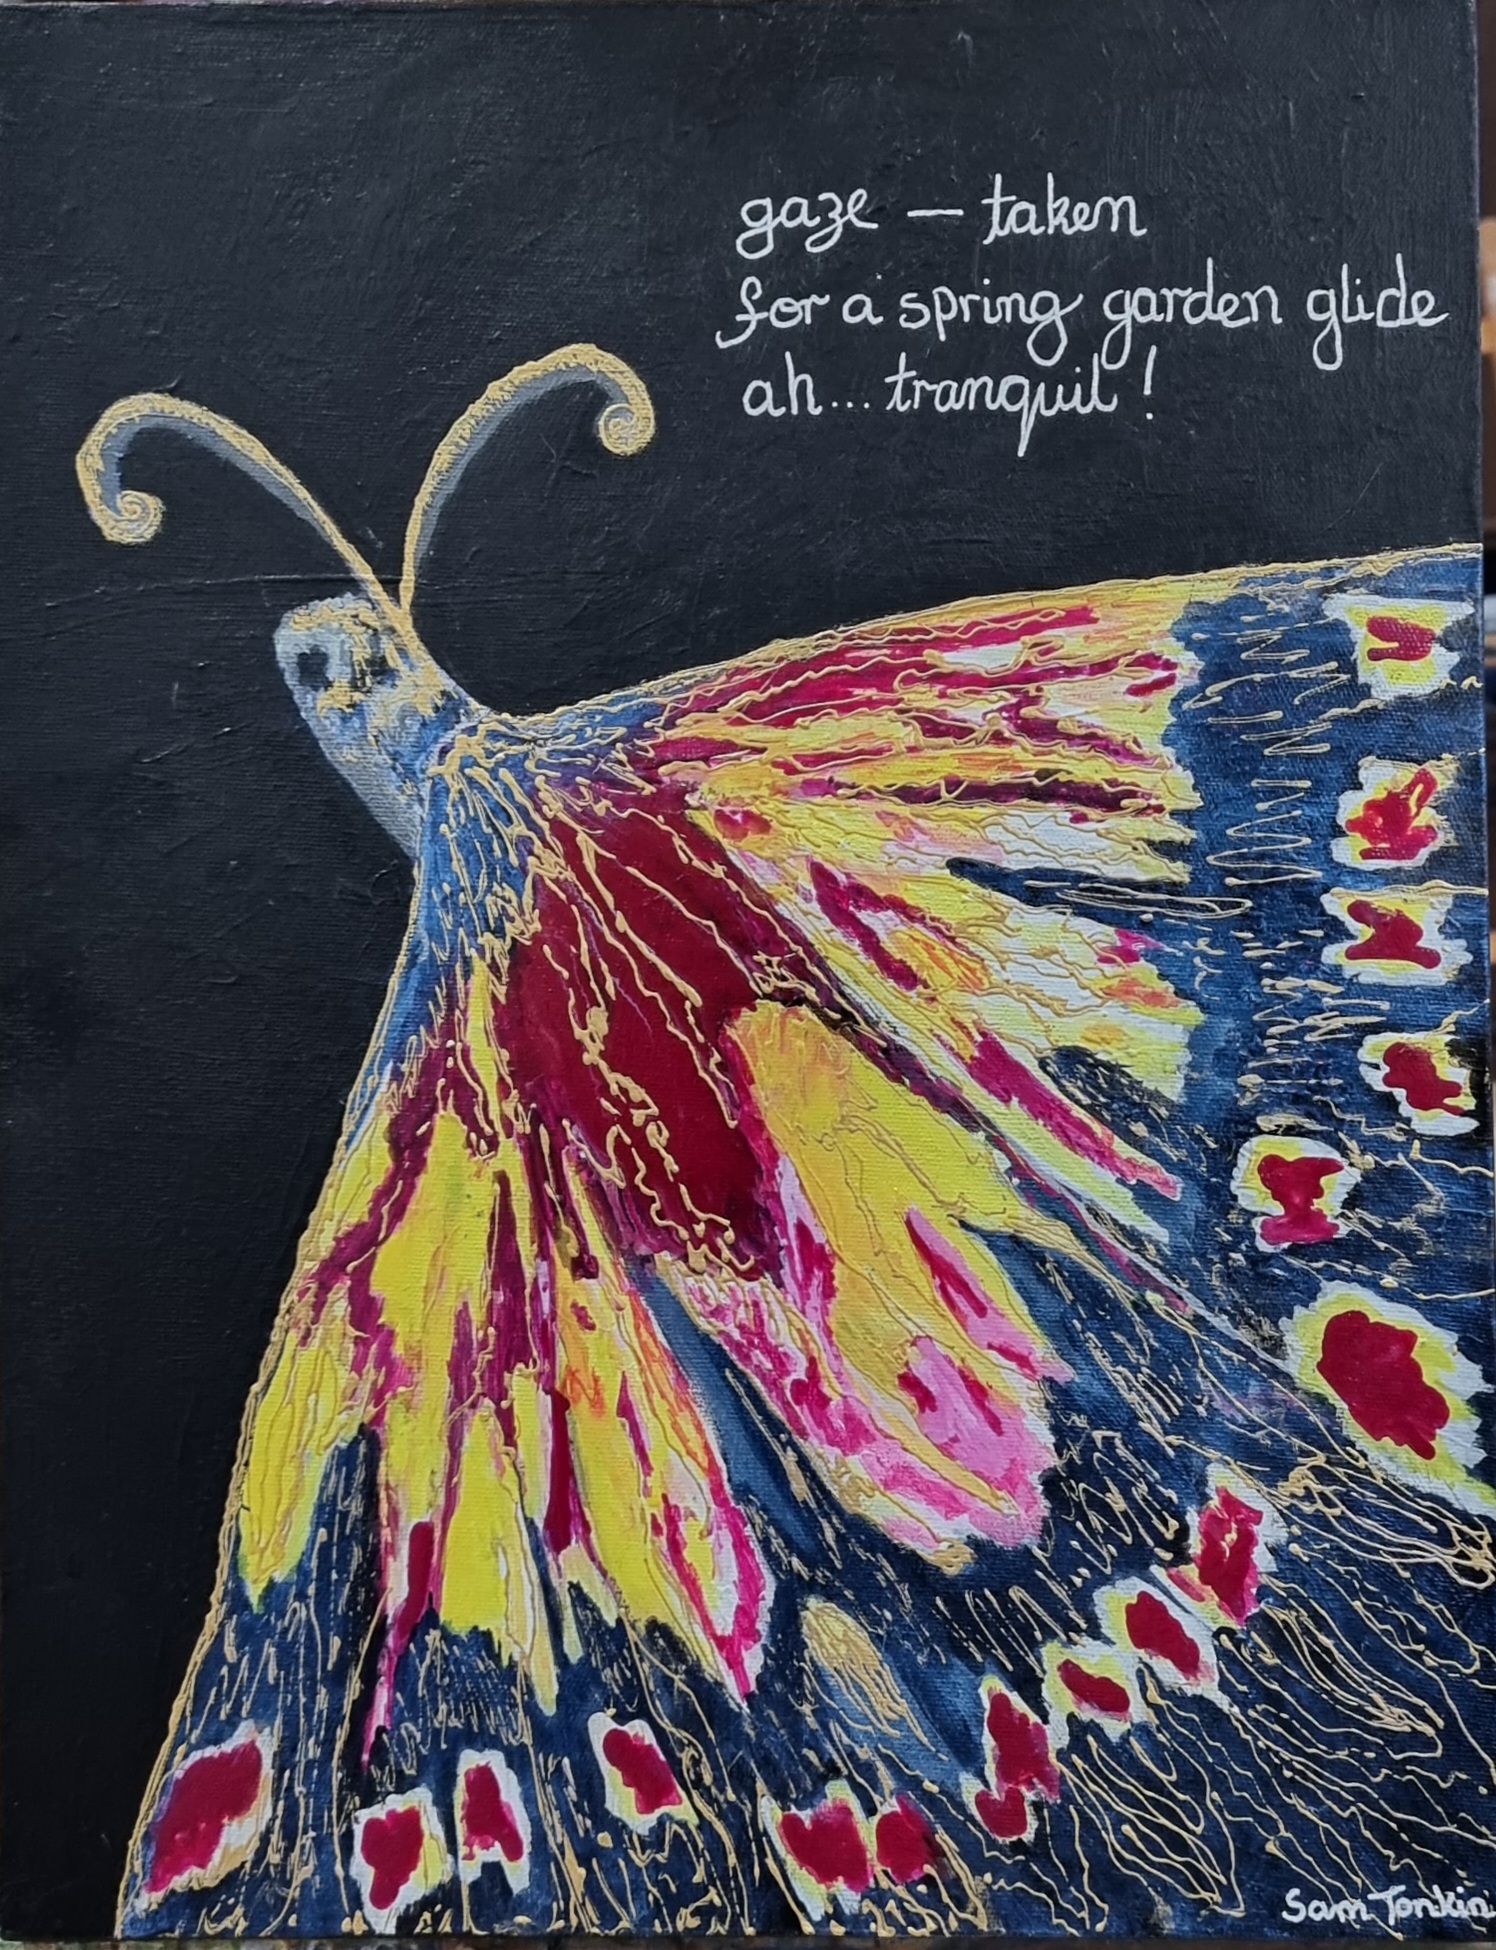 gaze — taken
for a spring garden glide
ah... tranquil!
Sam Tonkin